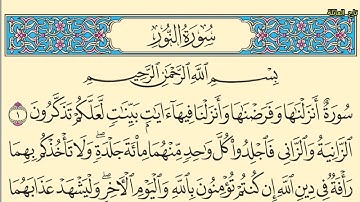 سُورَةُ النُّورِ
بِسْمِ اللَّهِ الرَّحْمَٰنِ الرَّحِيمِ
سُورَةٌ أَنزَلْنَاهَا وَفَرَضْنَاهَا وَأَنزَلْنَا فِيهَا ءَايَٰتٍۭ بَيِّنَٰتٍ لَّعَلَّكُمْ تَذَكَّرُونَ ١
الزَّانِيَةُ وَالزَّانِي فَاجْلِدُوا۟ كُلَّ وَٰحِدٍ مِّنْهُمَا مِا۟ئَةَ جَلْدَةٍ ۖ وَلَا تَأْخُذْكُم بِهِمَا
رَأْفَةٌ فِي دِينِ اللَّهِ إِن كُنتُمْ تُؤْمِنُونَ بِاللَّهِ وَالْيَوْمِ الْءَاخِرِ ۖ وَلْيَشْهَدْ عَذَابَهُمَا